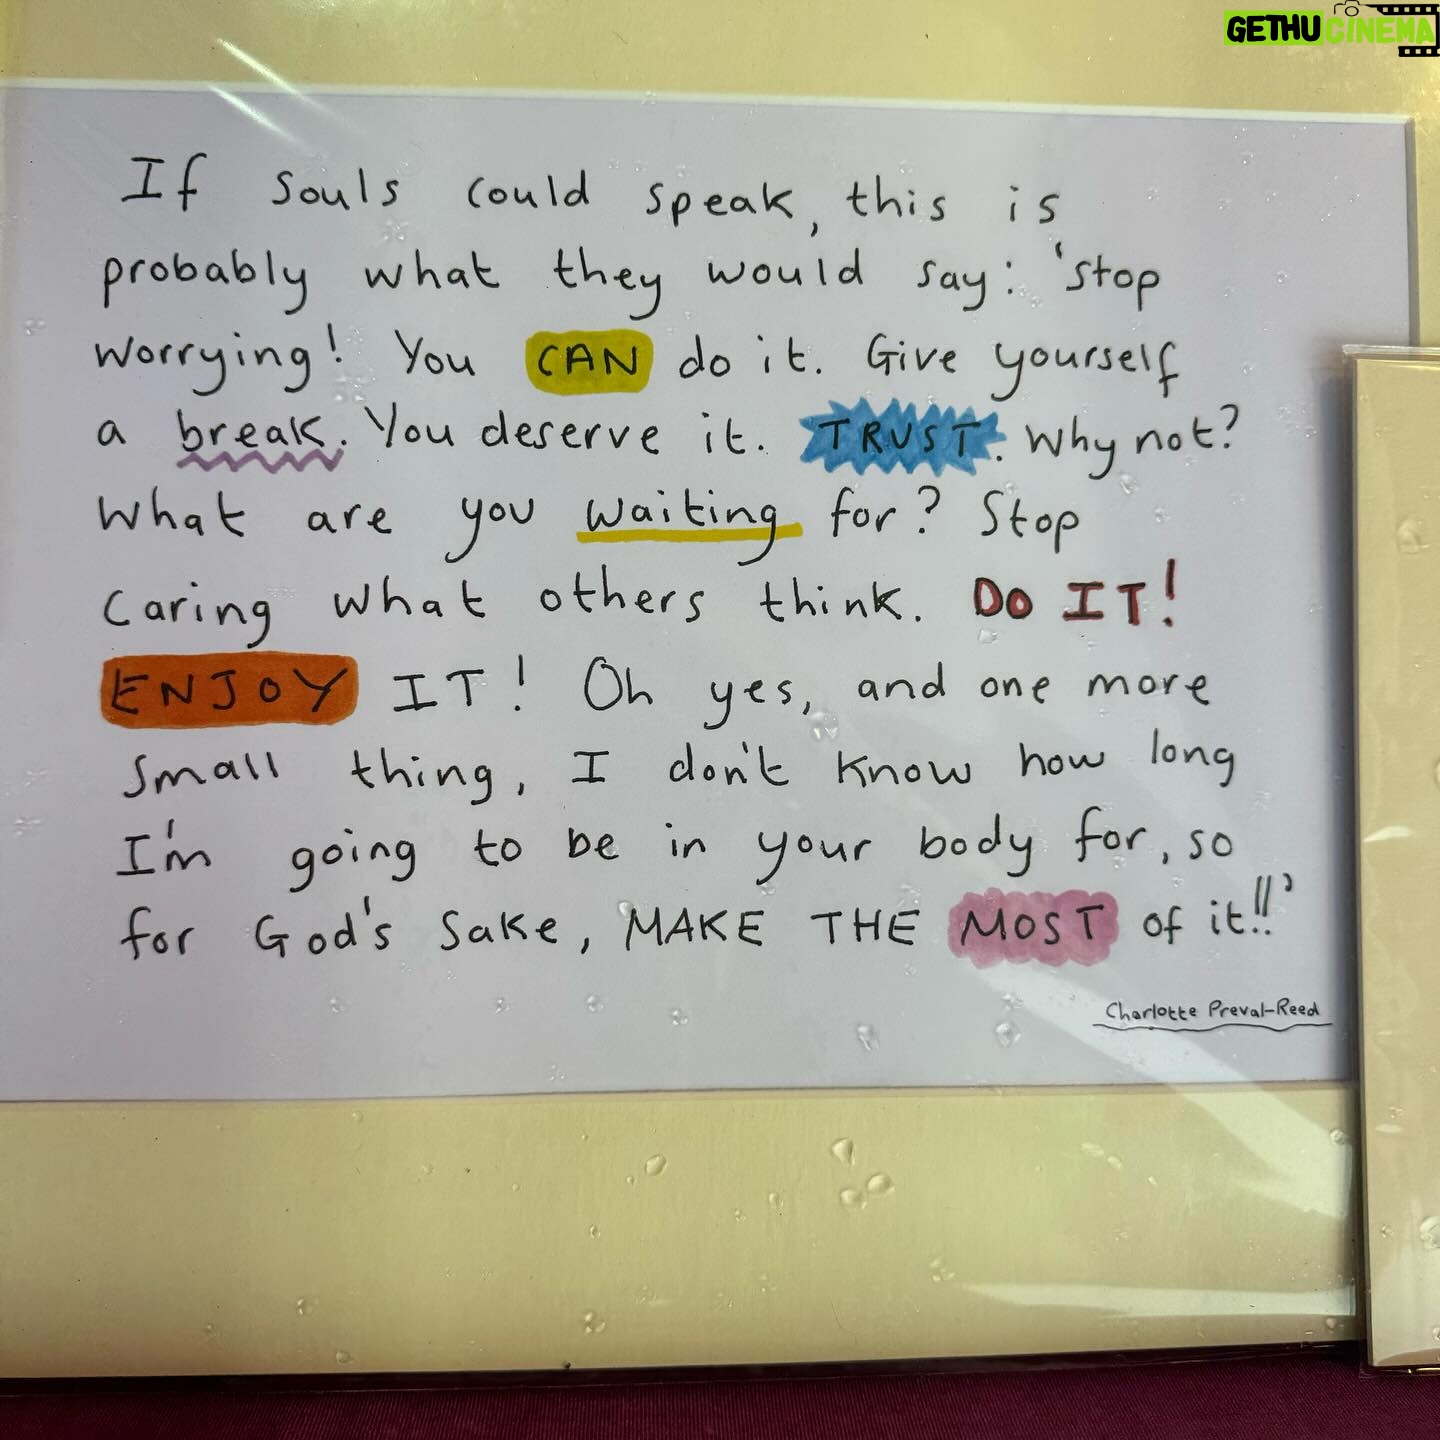 GETHUCINEMA
If souls could speak, this is
probably what they would say: 'Stop
worrying! You CAN do it. Give yourself
a break. You deserve it. TRUST. Why not?
What are you waiting for? Stop
caring what others think. DO IT!
ENJOY IT! Oh yes, and one more
small thing, I don't know how long
I'm going to be in your body for, so
for God's sake, MAKE THE MOST of it!!'
Charlotte Preval-Reed